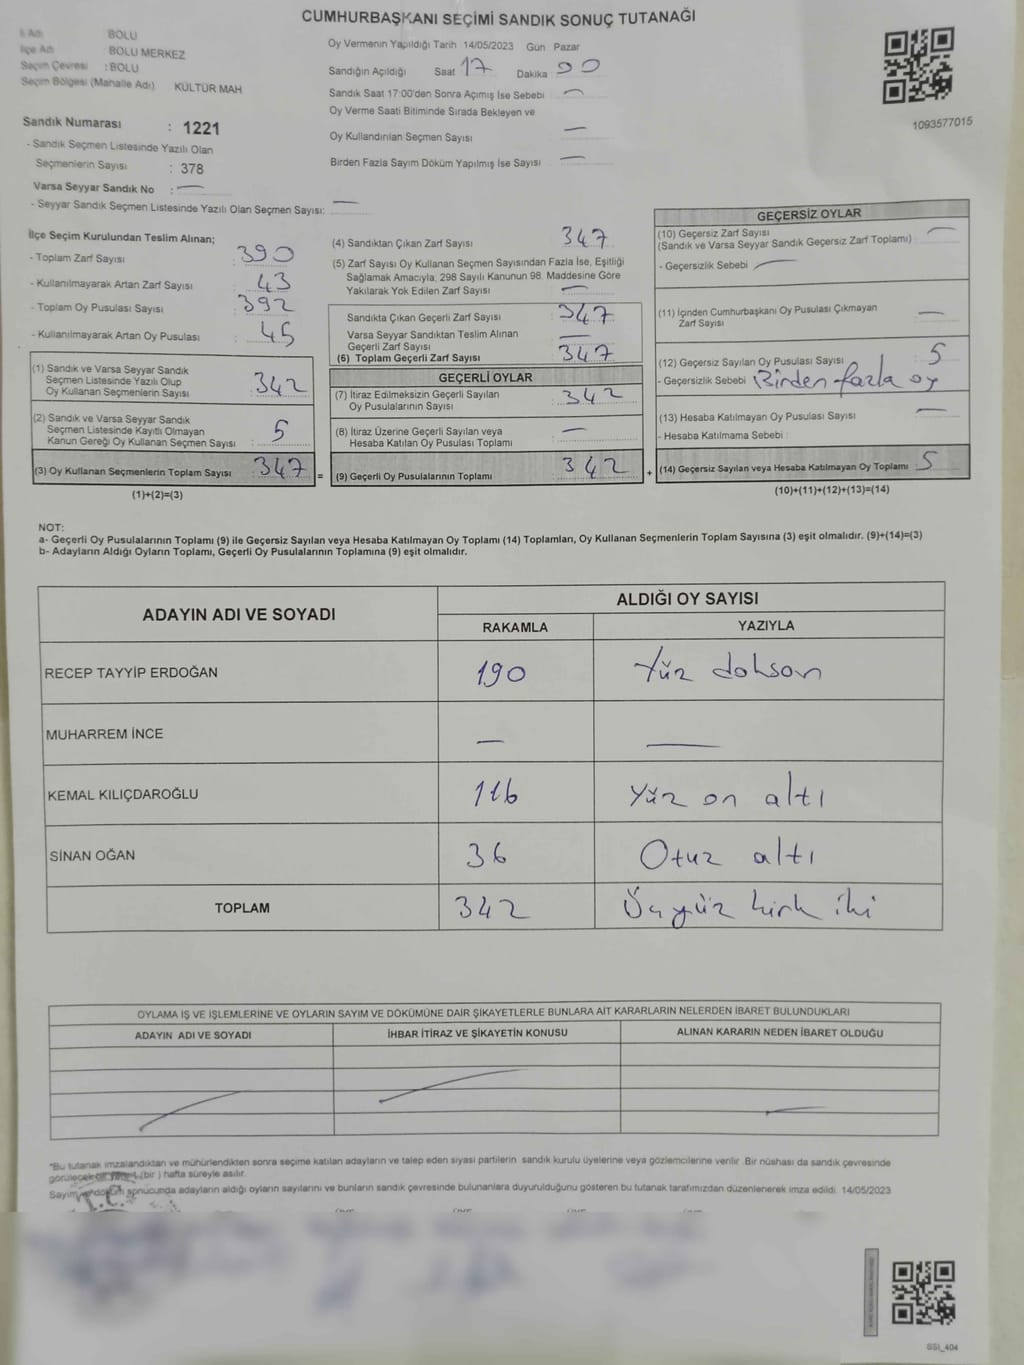 CUMHURBAŞKANI SEÇİMİ SANDIK SONUÇ TUTANAĞI
İl Adı BOLU
İlçe Adı : BOLU MERKEZ
Seçim Çevresi : BOLU
Seçim Bölgesi (Mahalle Adı) KÜLTÜR MAH
Sandık Numarası : 1221
- Sandık Seçmen Listesinde Yazılı Olan
Seçmenlerin Sayısı : 378
Varsa Seyyar Sandık No : —
- Seyyar Sandık Seçmen Listesinde Yazılı Olan Seçmen Sayısı: —
Oy Vermenin Yapıldığı Tarih 14/05/2023 Gün Pazar
Sandığın Açıldığı Saat 17 Dakika 00
Sandık Saat 17:00'den Sonra Açımış İse Sebebi —
Oy Verme Saati Bitiminde Sırada Bekleyen ve
Oy Kullandırılan Seçmen Sayısı —
Birden Fazla Sayım Döküm Yapılmış İse Sayısı —
1093577015
İlçe Seçim Kurulundan Teslim Alınan;
- Toplam Zarf Sayısı : 390
- Kullanılmayarak Artan Zarf Sayısı : 43
- Toplam Oy Pusulası Sayısı : 392
- Kullanılmayarak Artan Oy Pusulası : 45
(1) Sandık ve Varsa Seyyar Sandık
Seçmen Listesinde Yazılı Olup
Oy Kullanan Seçmenlerin Sayısı : 342
(2) Sandık ve Varsa Seyyar Sandık
Seçmen Listesinde Kayıtlı Olmayan
Kanun Gereği Oy Kullanan Seçmen Sayısı : 5
(3) Oy Kullanan Seçmenlerin Toplam Sayısı : 347 =
(1)+(2)=(3)
(4) Sandıktan Çıkan Zarf Sayısı 347
(5) Zarf Sayısı Oy Kullanan Seçmen Sayısından Fazla İse, Eşitliği
Sağlamak Amacıyla, 298 Sayılı Kanunun 98. Maddesine Göre
Yakılarak Yok Edilen Zarf Sayısı —
Sandıkta Çıkan Geçerli Zarf Sayısı 347
Varsa Seyyar Sandıktan Teslim Alınan
Geçerli Zarf Sayısı —
(6) Toplam Geçerli Zarf Sayısı 347
GEÇERLİ OYLAR
(7) İtiraz Edilmeksizin Geçerli Sayılan
Oy Pusulalarının Sayısı : 342
(8) İtiraz Üzerine Geçerli Sayılan veya
Hesaba Katılan Oy Pusulası Toplamı —
(9) Geçerli Oy Pusulalarının Toplamı 342 +
GEÇERSİZ OYLAR
(10) Geçersiz Zarf Sayısı —
(Sandık ve Varsa Seyyar Sandık Geçersiz Zarf Toplamı)
- Geçersizlik Sebebi —
(11) İçinden Cumhurbaşkanı Oy Pusulası Çıkmayan
Zarf Sayısı —
(12) Geçersiz Sayılan Oy Pusulası Sayısı 5
- Geçersizlik Sebebi Birden fazla oy
(13) Hesaba Katılmayan Oy Pusulası Sayısı —
- Hesaba Katılmama Sebebi
(14) Geçersiz Sayılan veya Hesaba Katılmayan Oy Toplamı 5
(10)+(11)+(12)+(13)=(14)
NOT:
a- Geçerli Oy Pusulalarının Toplamı (9) ile Geçersiz Sayılan veya Hesaba Katılmayan Oy Toplamı (14) Toplamları, Oy Kullanan Seçmenlerin Toplam Sayısına (3) eşit olmalıdır. (9)+(14)=(3)
b- Adayların Aldığı Oyların Toplamı, Geçerli Oy Pusulalarının Toplamına (9) eşit olmalıdır.
ADAYIN ADI VE SOYADI
ALDIĞI OY SAYISI
RAKAMLA YAZIYLA
RECEP TAYYİP ERDOĞAN 190 Yüz doksan
MUHARREM İNCE — —
KEMAL KILIÇDAROĞLU 116 Yüz on altı
SİNAN OĞAN 36 Otuz altı
TOPLAM 342 Üçyüz kırk iki
OYLAMA İŞ VE İŞLEMLERİNE VE OYLARIN SAYIM VE DÖKÜMÜNE DAİR ŞİKAYETLERLE BUNLARA AİT KARARLARIN NELERDEN İBARET BULUNDUKLARI
ADAYIN ADI VE SOYADI İHBAR İTİRAZ VE ŞİKAYETİN KONUSU ALINAN KARARIN NEDEN İBARET OLDUĞU
*Bu tutanak imzalandıktan ve mühürlendikten sonra seçime katılan adayların ve talep eden siyasi partilerin sandık kurulu üyelerine veya gözlemcilerine verilir. Bir nüshası da sandık çevresinde
görülecek bir yere 1 (bir ) hafta süreyle asılır.
Sayım ve döküm sonucunda adayların aldığı oyların sayılarını ve bunların sandık çevresinde bulunanlara duyurulduğunu gösteren bu tutanak tarafımızdan düzenlenerek imza edildi. 14/05/2023
T.C.
SSİ_404